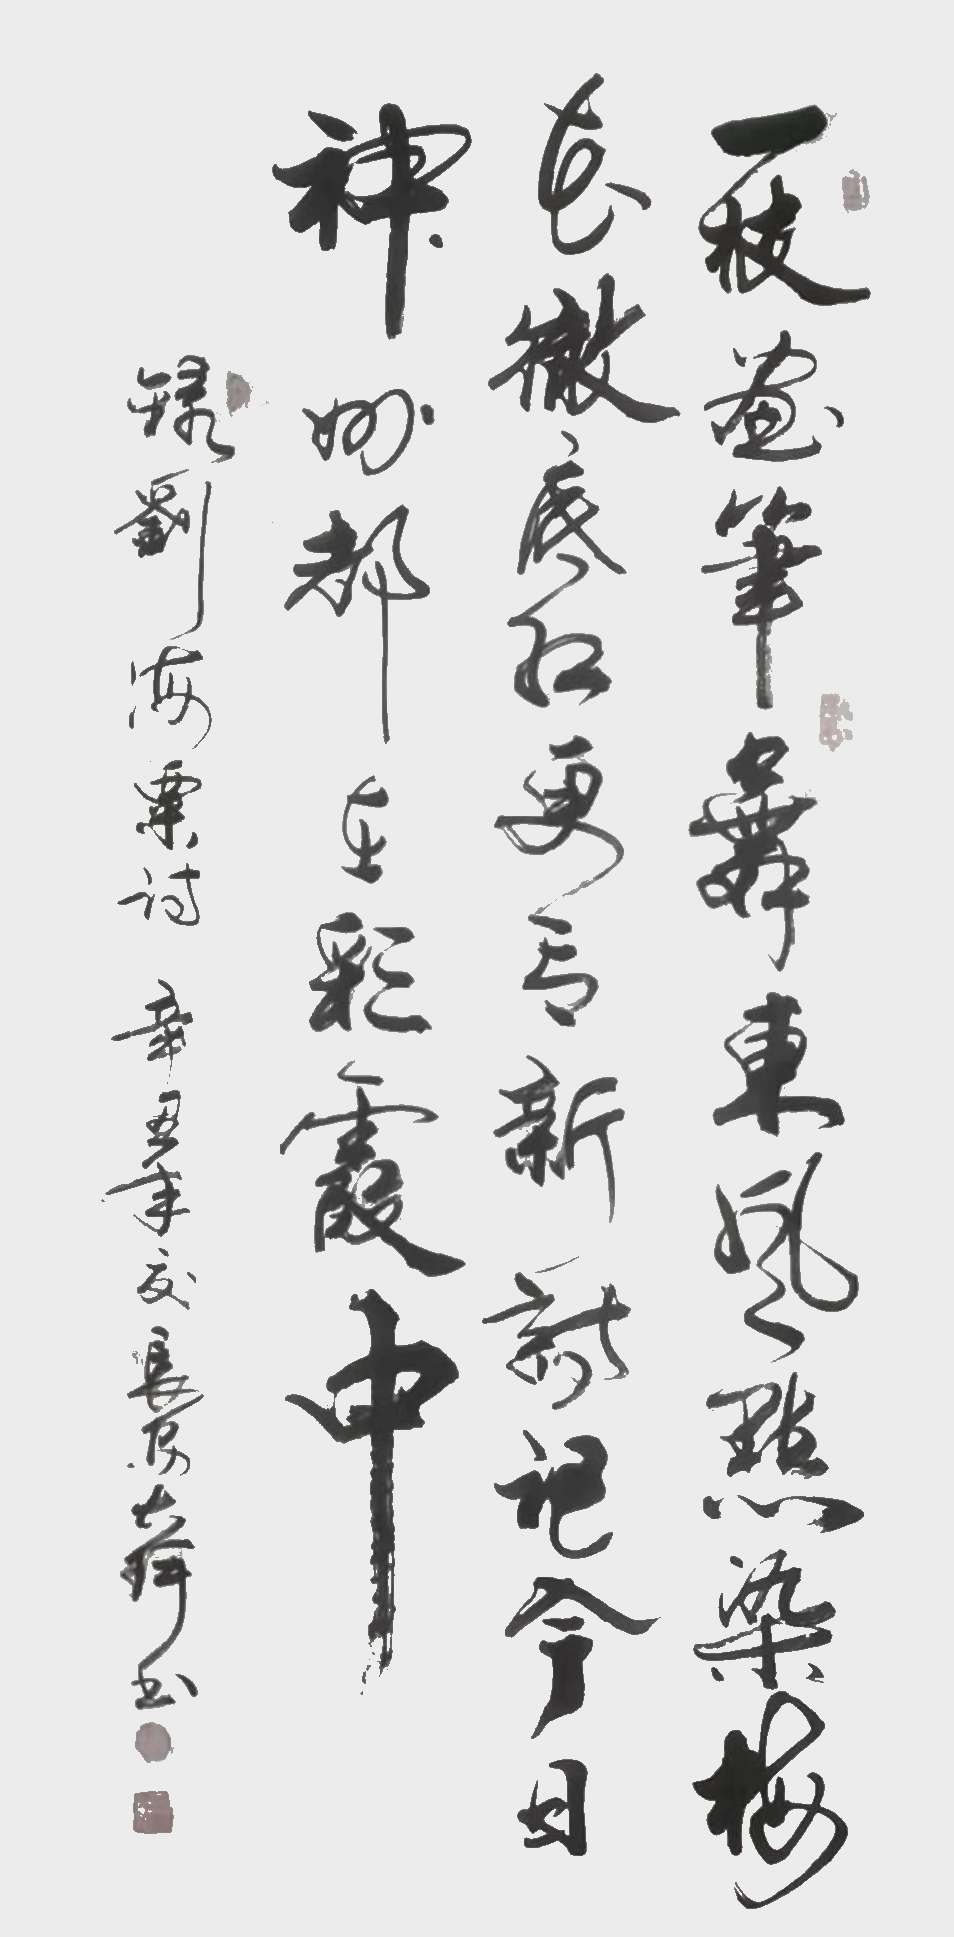 一枝画筆舞東風點染梅
花徹底紅更有新詩記今日
神州都在彩霞中
録劉海粟詩 辛丑年 長安 書